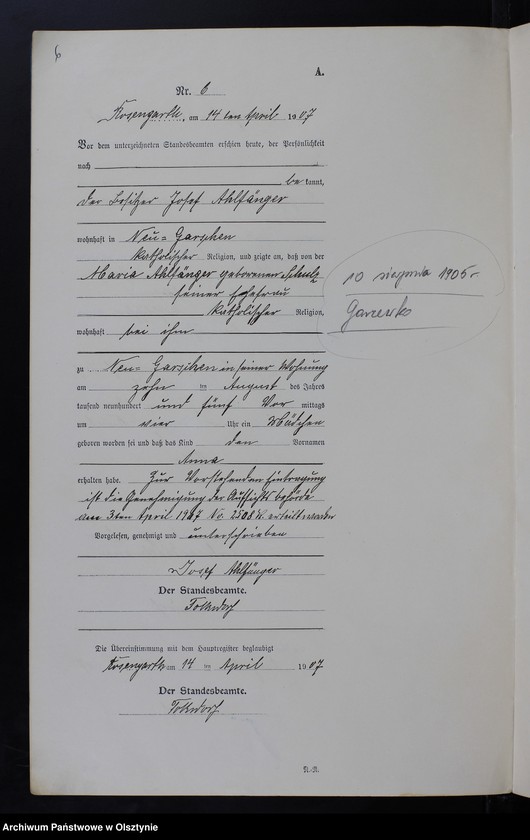 6
A.
Nr. 6
Rosengarth, am 14 ten April 1907
Vor dem unterzeichneten Standesbeamten erschien heute, der Persönlichkeit
nach
be kannt,
der Besitzer Josef Ahlfänger
wohnhaft in Neu-Garschen
katholischer Religion, und zeigte an, daß von der
Maria Ahlfänger geborenen Schulz
seiner Ehefrau
katholischer Religion,
wohnhaft bei ihm
zu Neu-Garschen in seiner Wohnung
am zehn ten August des Jahres
tausend neunhundert und fünf Vor mittags
um vier Uhr ein Mädchen
geboren worden sei und daß das Kind den Vornamen
Anna
erhalten habe. Zur Vorstehenden Eintragung
ist die Genehmigung der Aufsichtsbehörde
am 3ten April 1907 No. 2508 erteilt worden
Vorgelesen, genehmigt und unterschrieben
Josef Ahlfänger
Der Standesbeamte.
Tolksdorf
Die Übereinstimmung mit dem Hauptregister beglaubigt
Rosengarth am 14 ten April 1907
Der Standesbeamte.
Tolksdorf
N.-N.
10 sierpnia 1905 r
Garzewko
Archiwum Państwowe w Olsztynie